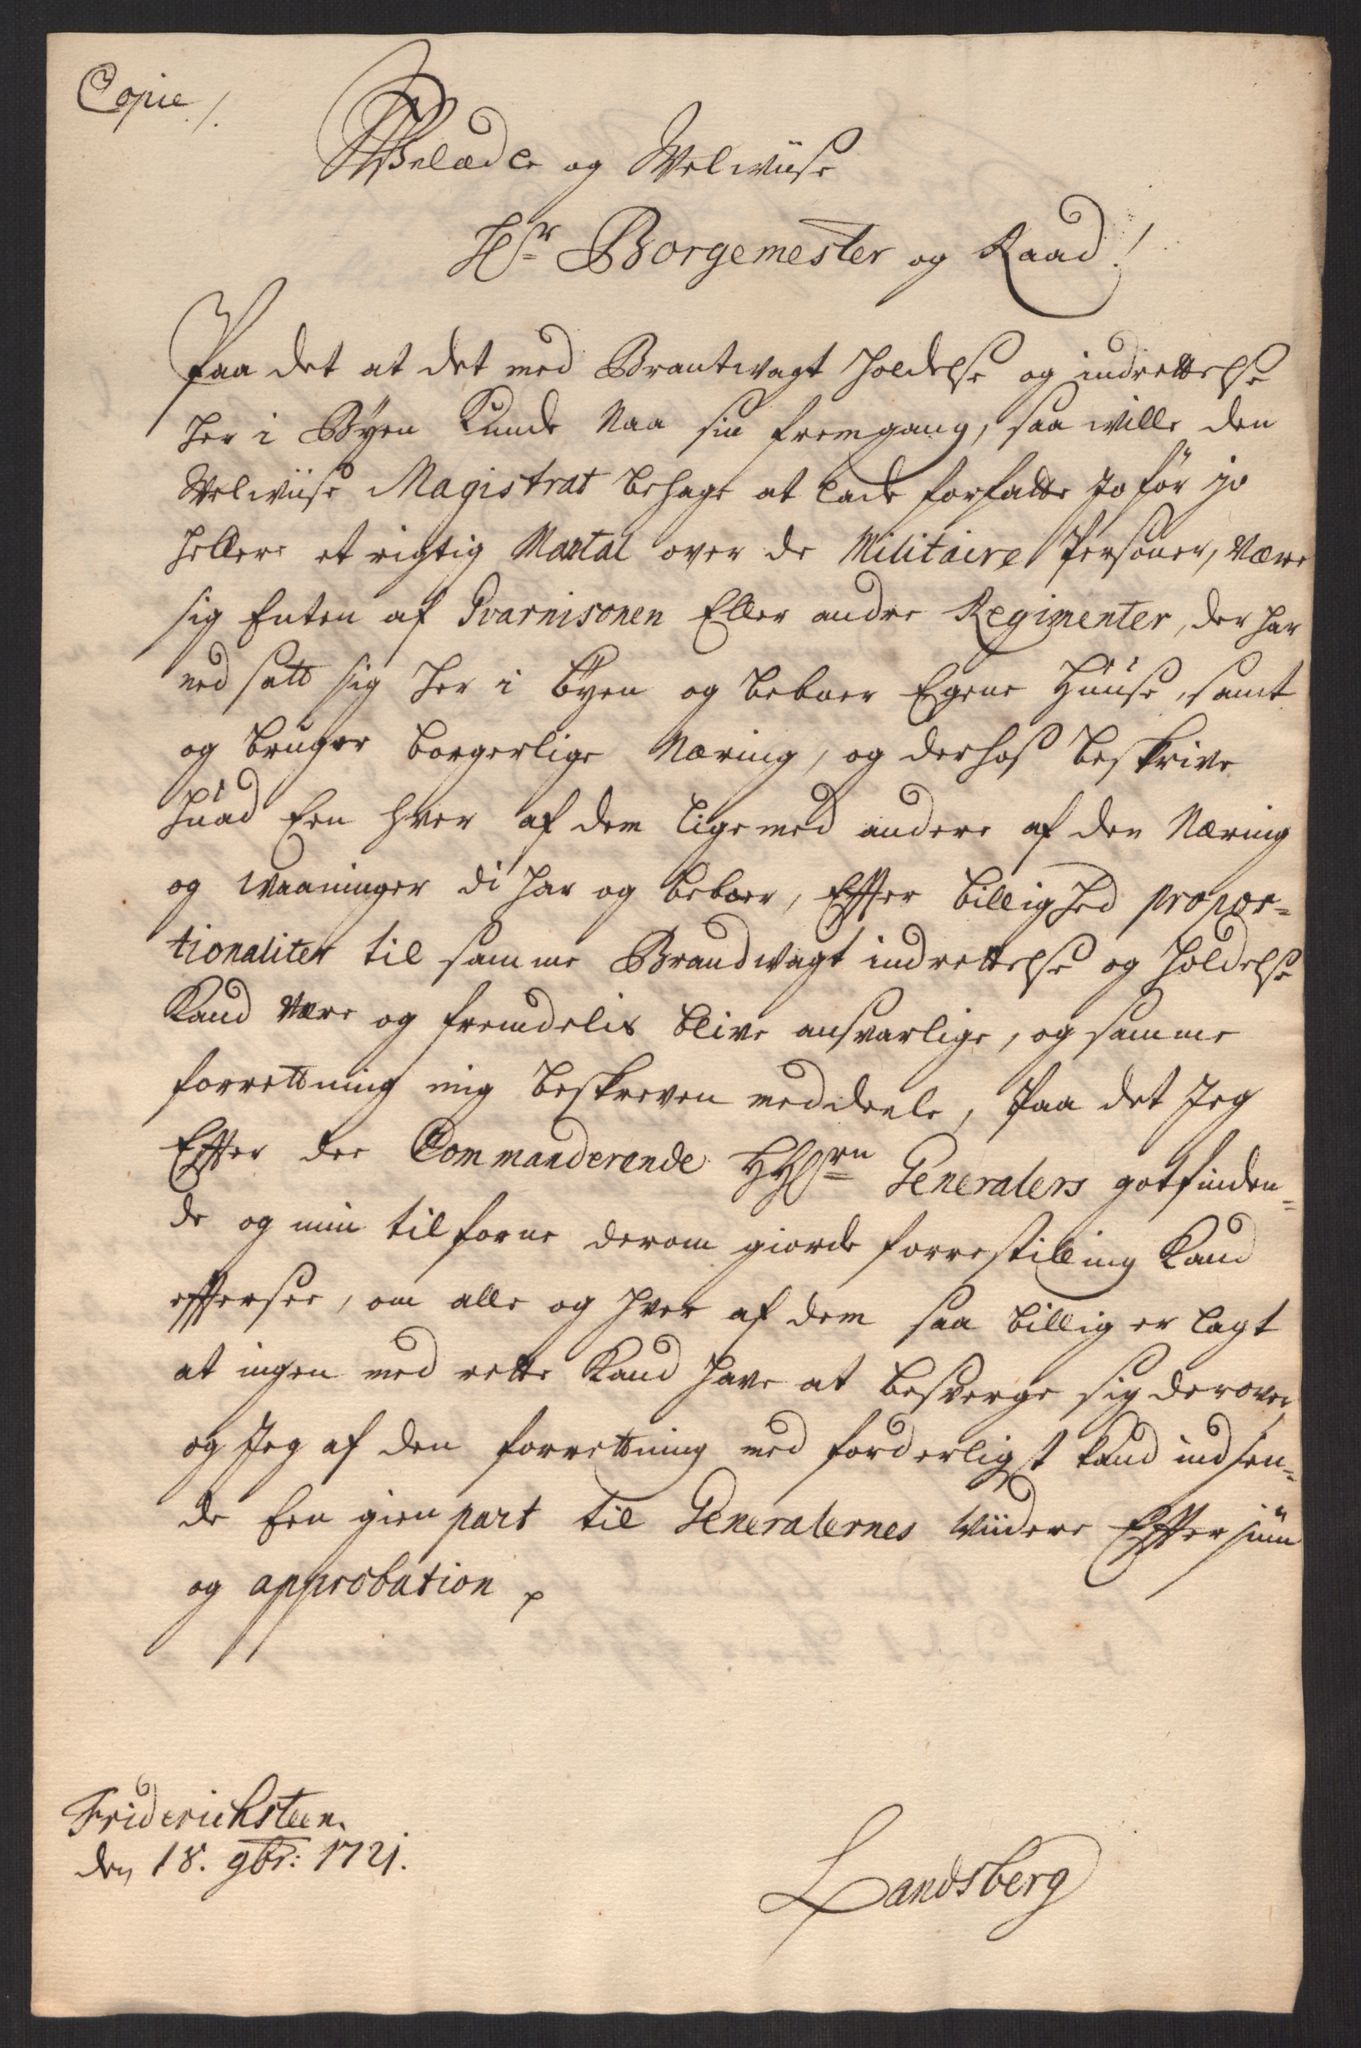 Copie /.
Welædle og Welwiise
Hr Borgemester og Raad!
Paa det at det med Brantvagt Holdelse og indrettelse
Her i Byen Kunde Naa sin fremgang, saa wille den
Welwiise Magistrat behage at lade forfatte Jo før jo
hellere et rigtig Mantal over de Militaire Personer, være
sig Enten af Gvarnisonen Eller andre Regimenter, der har
ned satt sig Her i Byen og beboer Egene Huuse, samt
og bruger borgerlige Næring, og derhos beskrive
huad Een hver af dem lige med andere af den Næring
og Waaninger di har og beboer, Effter billighed propor=
tionaliter til samme Brandwagt indrettelse og Holdelse
Kand være og fremdelis blive ansvarlige, og samme
forrettning mig beskreven meddeele, Paa det Jeg
Effter der Commanderende HHrn Generalers gotfinden=
de og min tilforne derom giorde forrestilling Kand
efftersee, om alle og hver af dem saa billig er lagt
at ingen med rette Kand have at besverge sig derover
og Jeg af den forrettning med forderligst kand indsen=
de Een gien part til Generalernes Viidere Efftersiun
og approbation
Friderichsteen.
den 18. 9br: 1721.
Landsberg